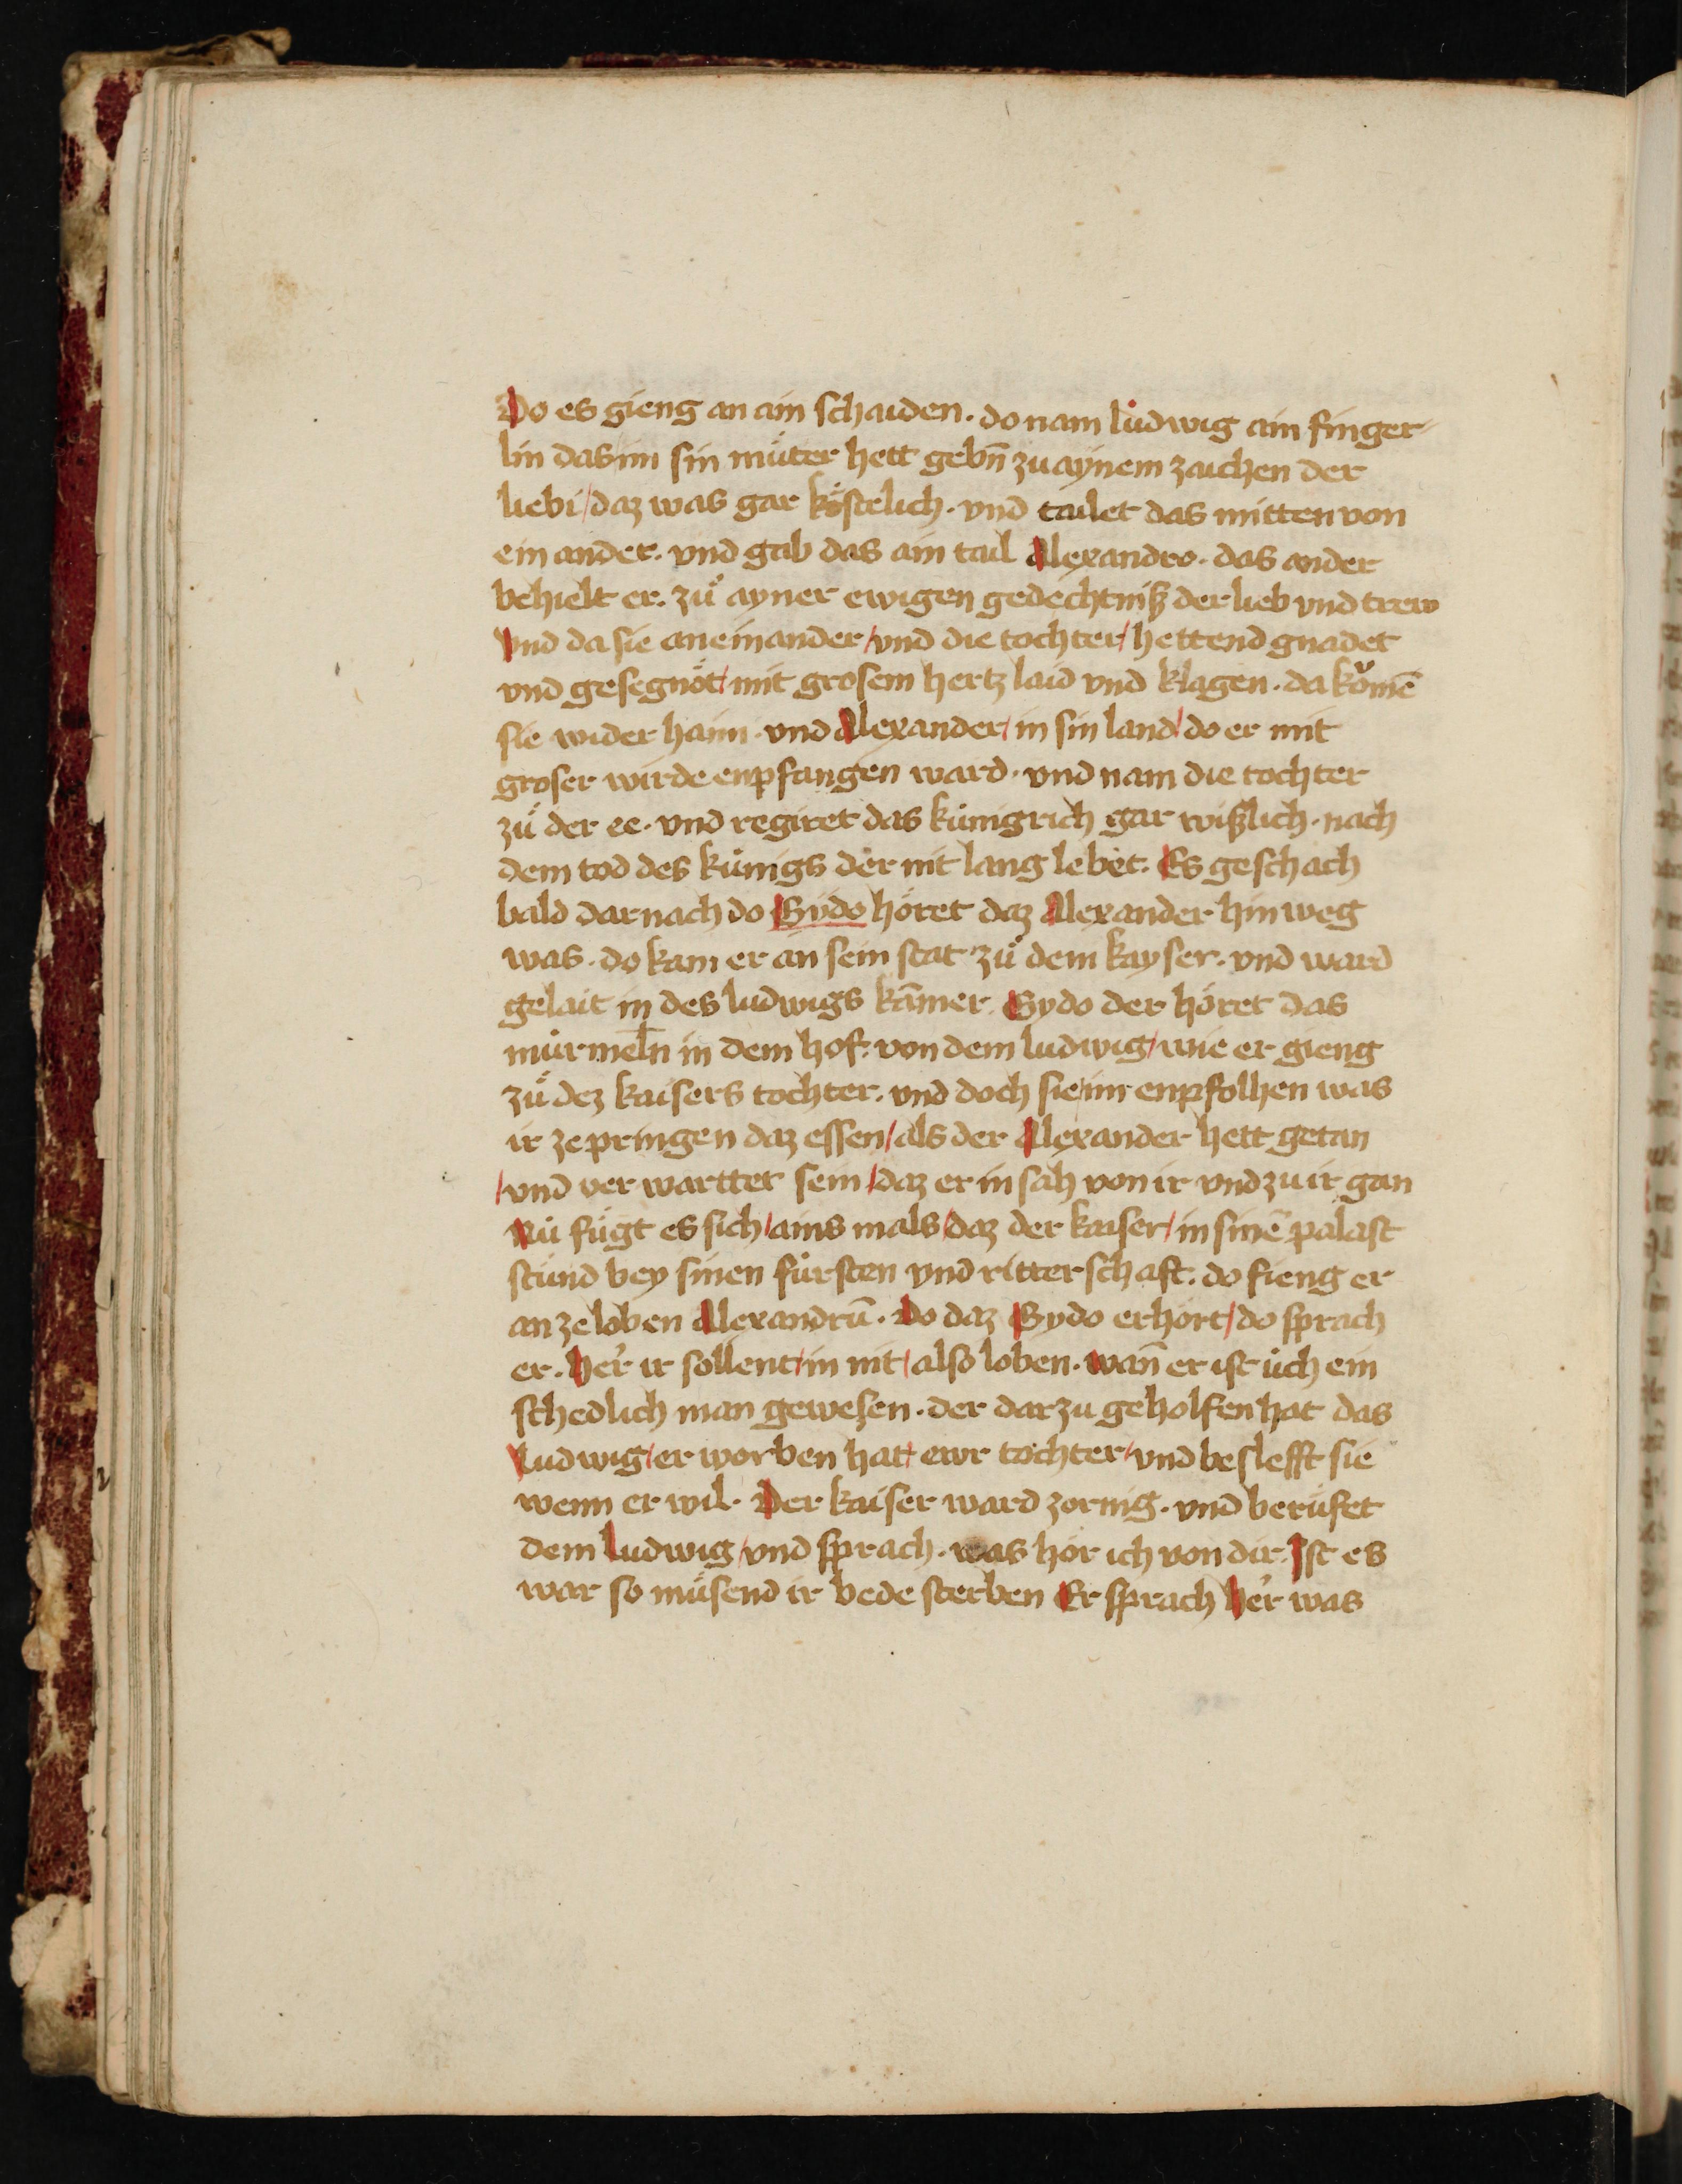 Do es gieng an ain schaiden. do nam ludwig ain finger
lin das im sin můter hett gebn̄ zu aynem zaichen der
liebi / daz was gar kostelich. vnd tailet das mitten von
ein ander. vnd gab das ain tail Alexandro. das ander
behielt er. zů ayner ewigen gedechtniß der lieb vnd trew
Vnd da sie an einander / vnd die tochter / hettend gnadet
vnd gesegnöt / mit grosem hertz laid vnd klagen. da komē
sie wider haim. vnd Alexander / in sin land / do er mit
groser wirde enpfangen ward. vnd nam die tochter
zů der ee. vnd regiret das kúnigrich gar wißlich. nach
dem tod des kúnigs der nit lang lebet. Es geschach
bald dar nach do Gydo höret daz Alexander hin weg
was. do kam er an sein stat zů dem kayser. vnd ward
gelait in des ludwigs kāmer. Gydo der höret das
murmeln in dem hof. von dem ludwig / wie er gieng
zů dez kaisers tochter. vnd doch sie im enpfolhen was
ir ze pringen daz essen / als der Alexander hett getan
/ vnd ver warttet sein / daz er in sah von ir vnd zu ir gan
Nu fůgt es sich / ains mals / daz der kaiser / in sinē palast
stůnd bey sinen fúrsten vnd ritterschaft. do fieng er
an ze loben Alexandrū. Do daz Gydo erhört / do sprach
er. her ir sollent / in nit / also loben. wan̄ er ist úch ein
schedlich man gewesen. der dar zu geholfen hat das
Ludwig / er worben hat / ewr tochter / vnd beslefft sie
wenn er wil. Der kaiser ward zornig. vnd berůfet
dem Ludwig / vnd sprach. was hör ich von dir. Ist es
war so můsend ir bede sterben Er sprach her was